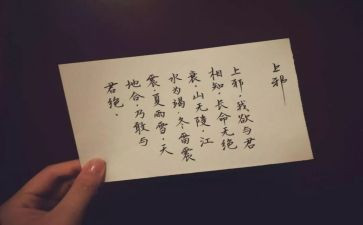 上邪
上邪·我欲与君
相知·长命无绝
衰·山无陵·江
水为竭·冬雷震
震·夏雨雪·天
地合·乃敢与
君绝·